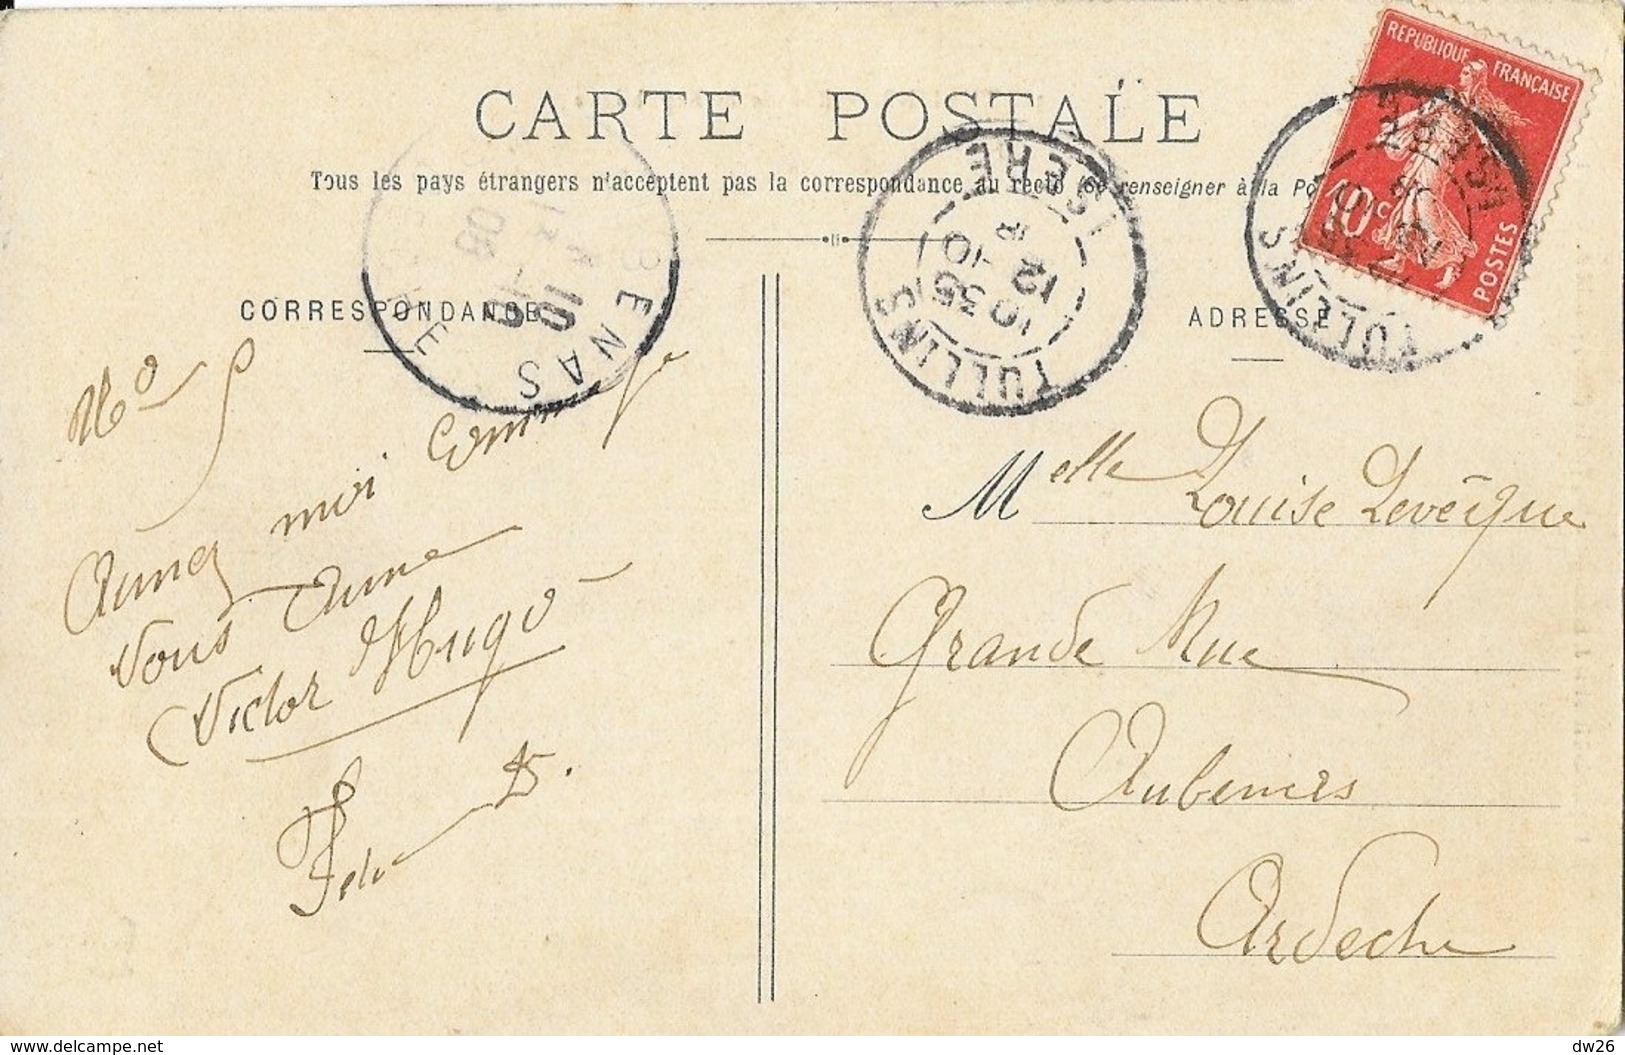 CARTE POSTALE
Tous les pays étrangers n'acceptent pas la correspondance au recto (Se renseigner à la Po
CORRESPONDANCE
ADRESSE
REPUBLIQUE FRANÇAISE
10 c
POSTES
TULLINS
ISERE
10 35
12 - 10
TULLINS
ISERE
BENAS
10 - 10
08
moi comme
vous aime
Victor Hugo
Melle Louise Levêque
Grande Rue
Aubenas
Ardèche
delcampe.net
dw26